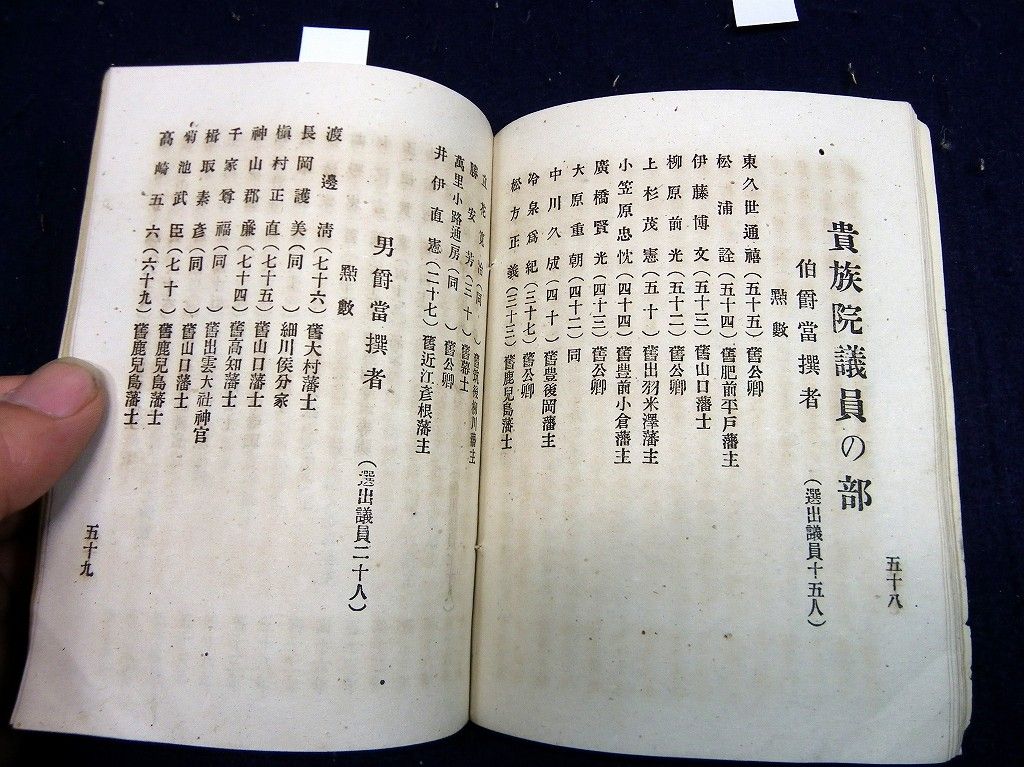 貴族院議員の部
伯爵當撰者(選出議員十五人)
點數
東久世通禧(五十五)舊公卿
松浦詮(五十四)舊肥前平戸藩主
伊藤博文(五十三)舊山口藩士
柳原前光(五十二)舊公卿
上杉茂憲(五十)舊出羽米澤藩主
小笠原忠忱(四十四)舊豊前小倉藩主
廣橋賢光(四十三)舊公卿
大原重朝(四十二)同
中川久成(四十)舊豊後岡藩主
冷泉爲紀(三十七)舊公卿
松方正義(三十三)舊鹿兒島藩士
五十八
立花寛治(同)舊筑後柳川藩主
勝安芳(三十)舊幕士
萬里小路通房(同)舊公卿
井伊直憲(二十七)舊近江彦根藩主
男爵當撰者(選出議員二十人)
點數
渡邊清(七十六)舊大村藩士
長岡護美(同)細川侯分家
槇村正直(七十五)舊山口藩士
神山郡廉(七十四)舊高知藩士
千家尊福(同)舊出雲大社神官
楫取素彦(同)舊山口藩士
菊池武臣(七十)舊鹿兒島藩士
高崎五六(六十九)舊鹿兒島藩士
五十九